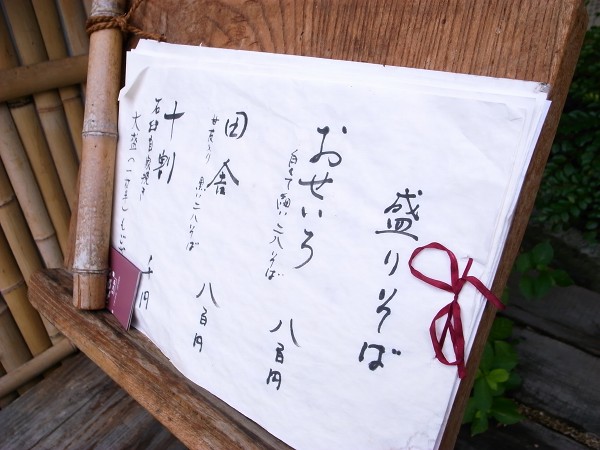 盛りそば
おせいろ
白くて細い二八そば 八百円
田舎
甘皮入り 黒い二八そば 八百円
十割
石臼自家挽き 千円
大盛